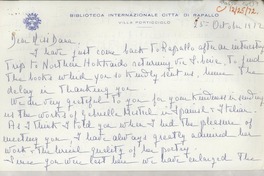 12/25/72
BIBLIOTECA INTERNAZIONALE CITTÀ DI RAPALLO
VILLA PORTICCIOLO
October 1972
Dear Miss Dana
I have just come back to Rapallo after an interesting
trip to Northern Hokkaido returning via, to find
the books which you so kindly sent us, hence the
delay in thanking you.
We are very grateful to you for your kindness in sending
us the works of Gabriela Mistral in Spanish & Italian
As I think I told you when I had the pleasure of
meeting you I have always greatly admired her
work & the lyrical quality of her poetry.
Since you were last here we have enlarged the